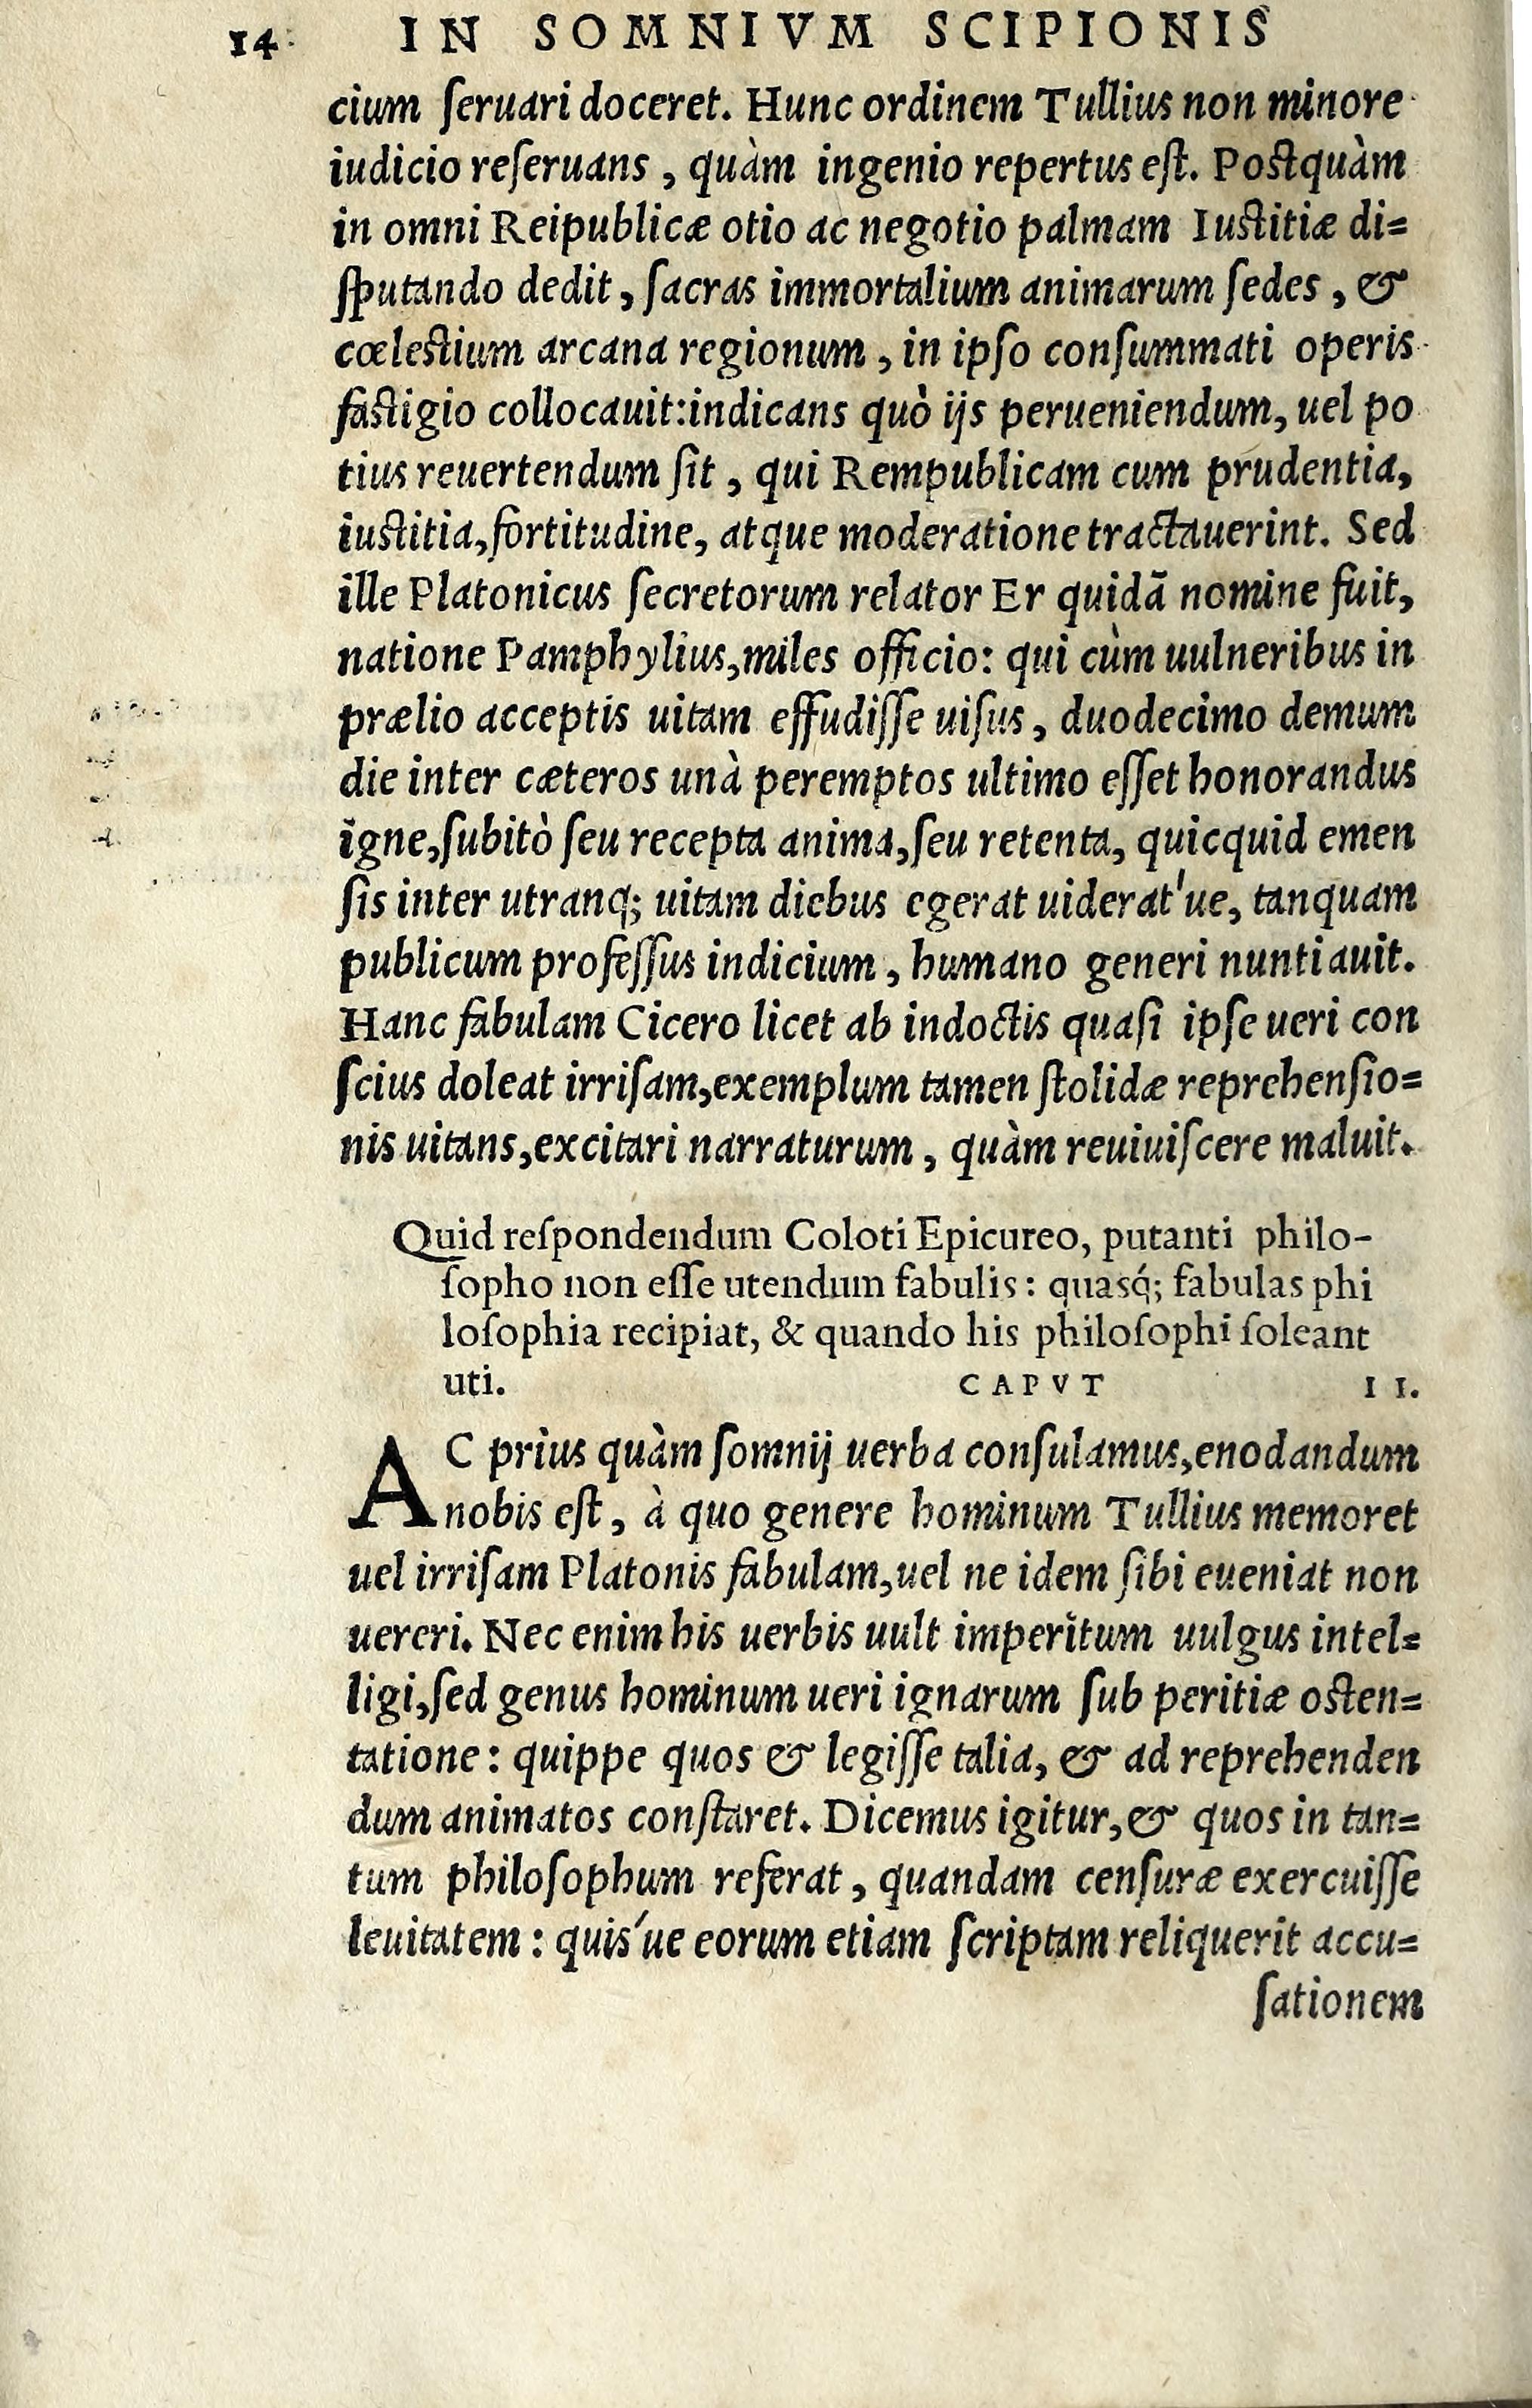 14 IN SOMNIVM SCIPIONIS
cium ſeruari doceret. Hunc ordinem Tullius non minore
iudicio reſeruans, quàm ingenio repertus eſt. Poſtquàm
in omni Reipublicæ otio ac negotio palmam Iuſtitiæ di=
ſputando dedit, ſacras immortalium animarum ſedes, &
cœleſtium arcana regionum, in ipſo conſummati operis
faſtigio collocauit: indicans quò ijs perueniendum, uel po
tius reuertendum ſit, qui Rempublicam cum prudentia,
iuſtitia, fortitudine, atque moderatione tractauerint. Sed
ille Platonicus ſecretorum relator Er quidã nomine fuit,
natione Pamphylius, miles officio: qui cùm uulneribus in
prælio acceptis uitam effudiſſe uiſus, duodecimo demum
die inter cæteros unà peremptos ultimo eſſet honorandus
igne, ſubitò ſeu recepta anima, ſeu retenta, quicquid emen
ſis inter utranq; uitam diebus egerat uiderat'ue, tanquam
publicum profeſſus indicium, humano generi nuntiauit.
Hanc fabulam Cicero licet ab indoctis quaſi ipſe ueri con
ſcius doleat irriſam, exemplum tamen ſtolidæ reprehenſio=
nis uitans, excitari narraturum, quàm reuiuiſcere maluit.
Quid reſpondendum Coloti Epicureo, putanti philo-
ſopho non eſſe utendum fabulis: quasq́; fabulas phi
loſophia recipiat, & quando his philoſophi ſoleant
uti. CAPVT II.
AC prius quàm ſomnij uerba conſulamus, enodandum
nobis eſt, à quo genere hominum Tullius memoret
uel irriſam Platonis fabulam, uel ne idem ſibi eueniat non
uereri. Nec enim his uerbis uult imperitum uulgus intel=
ligi, ſed genus hominum ueri ignarum ſub peritiæ oſten=
tatione: quippe quos & legiſſe talia, & ad reprehenden
dum animatos conſtaret. Dicemus igitur, & quos in tan=
tum philoſophum referat, quandam cenſuræ exercuiſſe
leuitatem: quis'ue eorum etiam ſcriptam reliquerit accu=
ſationem